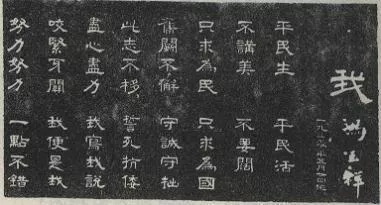 我
馮玉祥
平民生 平民活
不講美 不要闊
只求為民 只求為國
奮鬭不懈 守誠守拙
此志不移 誓死抗倭
盡心盡力 我寫我說
咬緊牙關 我便是我
努力努力 一點不錯